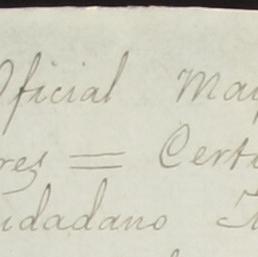 Oficial May
res = Certi
udadano